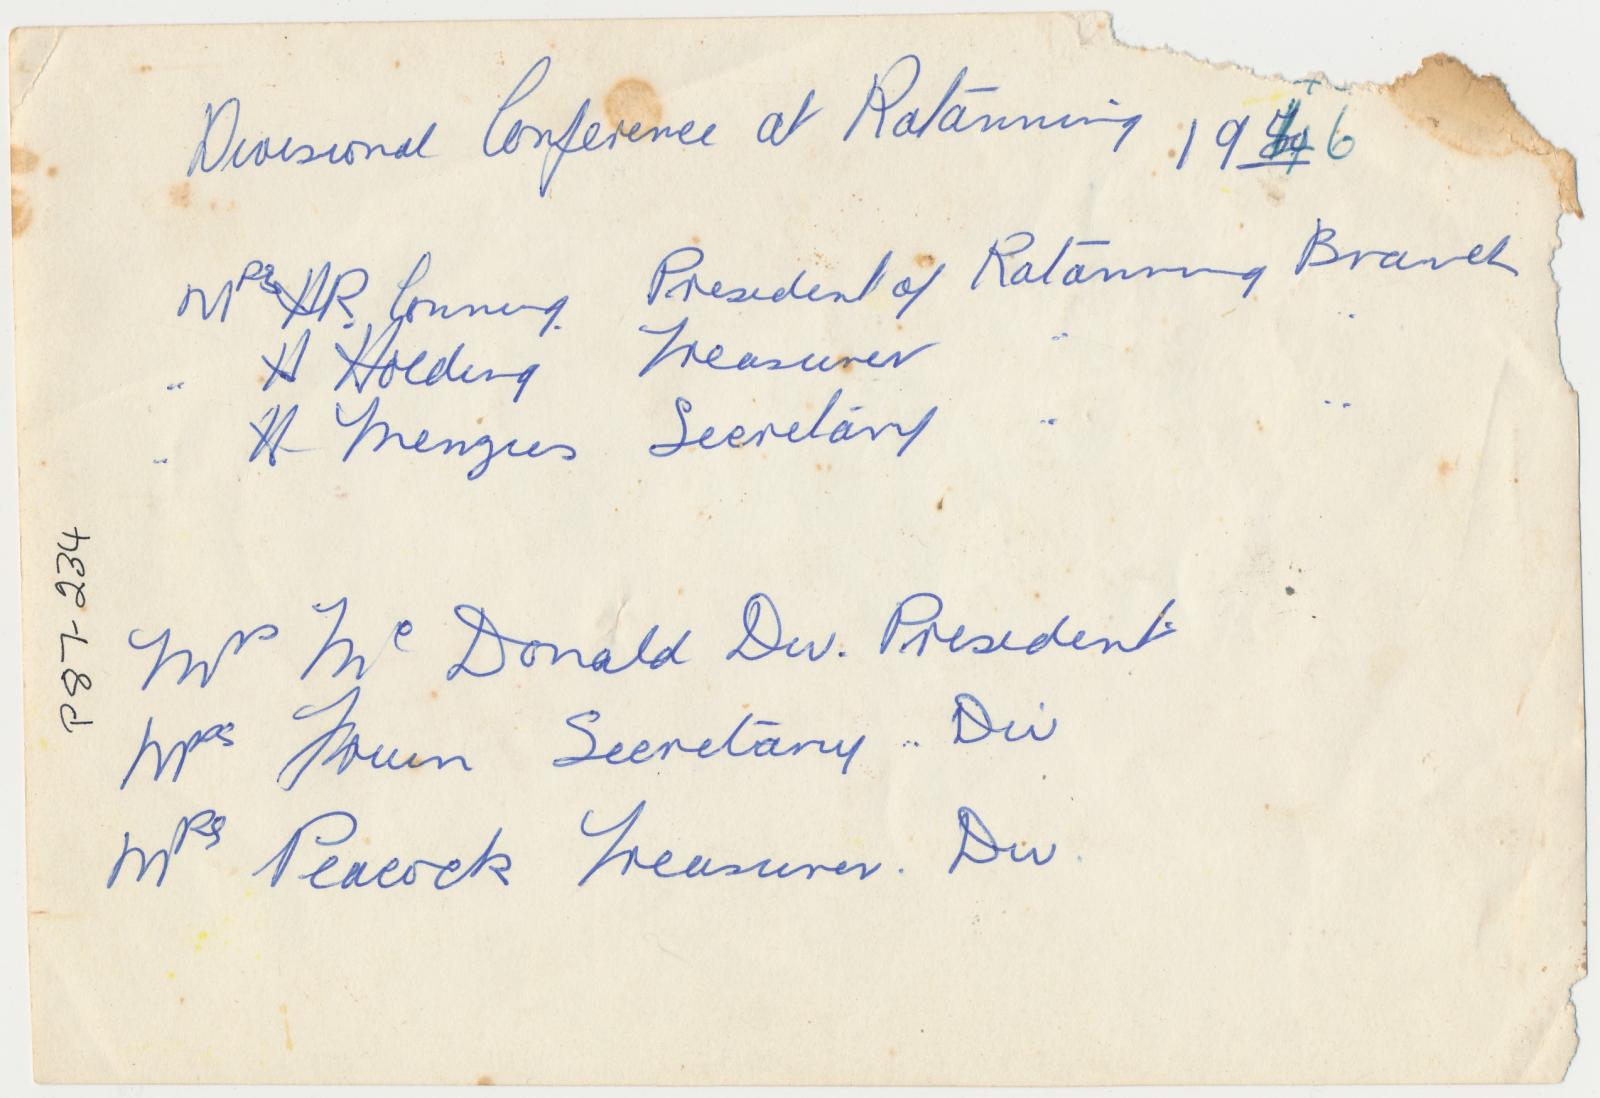 Divisional Conference at Katanning 1946
Mrs H R. Conning. President of Katanning Branch
" H Holding Treasurer " "
" H Menzies Secretary " "
Mrs Mc Donald Div. President
Mrs Secretary .. Div
Mrs Peacock Treasurer. Div.
P87-234